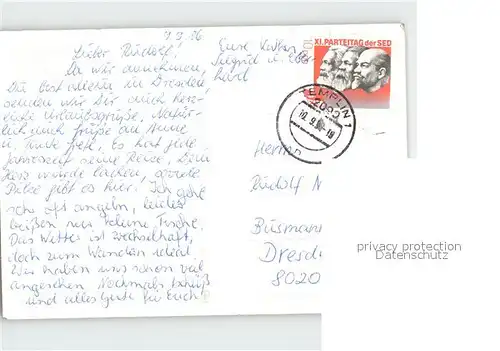 9.9.86
Lieber Rudolf!
Da wir annehmen,
Du bist allein in Dresden
senden wir Dir auch herz-
liche Urlaubsgrüße. Natür-
lich auch Grüße an Anne
u. Es hat jede
Jahreszeit seine Reize. Dein
Herz würde lachen, soviele
Pilze gibt es hier. Ich gehe
sehr oft angeln, leider
beißen nur kleine Fische.
Das Wetter ist wechselhaft,
doch zum Wandern ideal.
Wir haben uns schon viel
angesehen. Nochmals
und alles Gute für Euch
Eure
Siegrid u.
hard
10
XI. PARTEITAG der SED
TEMPLIN 1
2090
10.9.86-18
Herrn
Rudolf
Büsmann
Dresde
8020
privacy protection
www.ansichtskarten-center.de